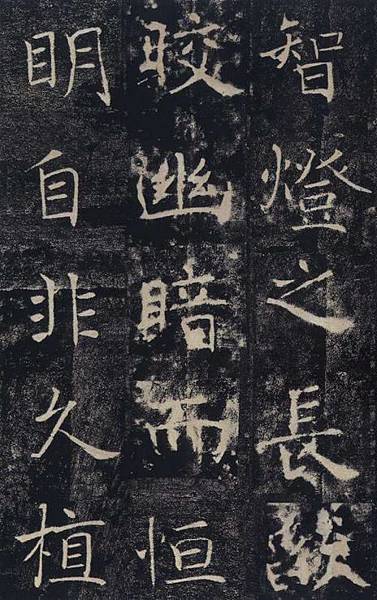 智燈之長燄
晈幽暗而恒
眀自非久植